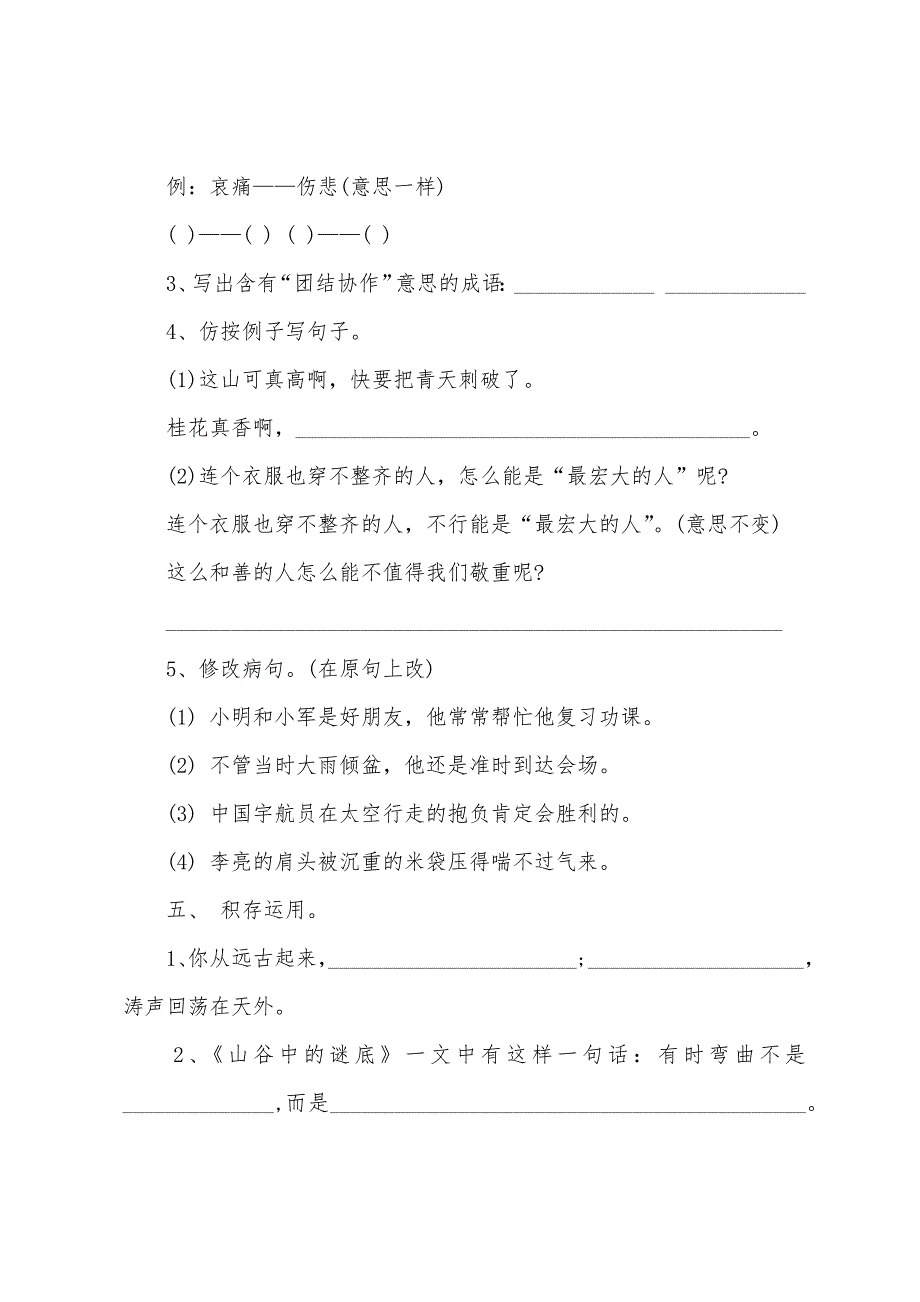 例：哀痛——伤悲(意思一样)
( )——( ) ( )——( )
3、写出含有“团结协作”意思的成语：_____________ _____________
4、仿按例子写句子。
(1)这山可真高啊，快要把青天刺破了。
桂花真香啊，__________________________________________。
(2)连个衣服也穿不整齐的人，怎么能是“最宏大的人”呢?
连个衣服也穿不整齐的人，不行能是“最宏大的人”。(意思不变)
这么和善的人怎么能不值得我们敬重呢?
_________________________________________________________
5、修改病句。(在原句上改)
(1) 小明和小军是好朋友，他常常帮忙他复习功课。
(2) 不管当时大雨倾盆，他还是准时到达会场。
(3) 中国宇航员在太空行走的抱负肯定会胜利的。
(4) 李亮的肩头被沉重的米袋压得喘不过气来。
五、 积存运用。
1、你从远古起来，_______________________;____________________，
涛声回荡在天外。
2、《山谷中的谜底》一文中有这样一句话：有时弯曲不是
______________,而是____________________________________________。